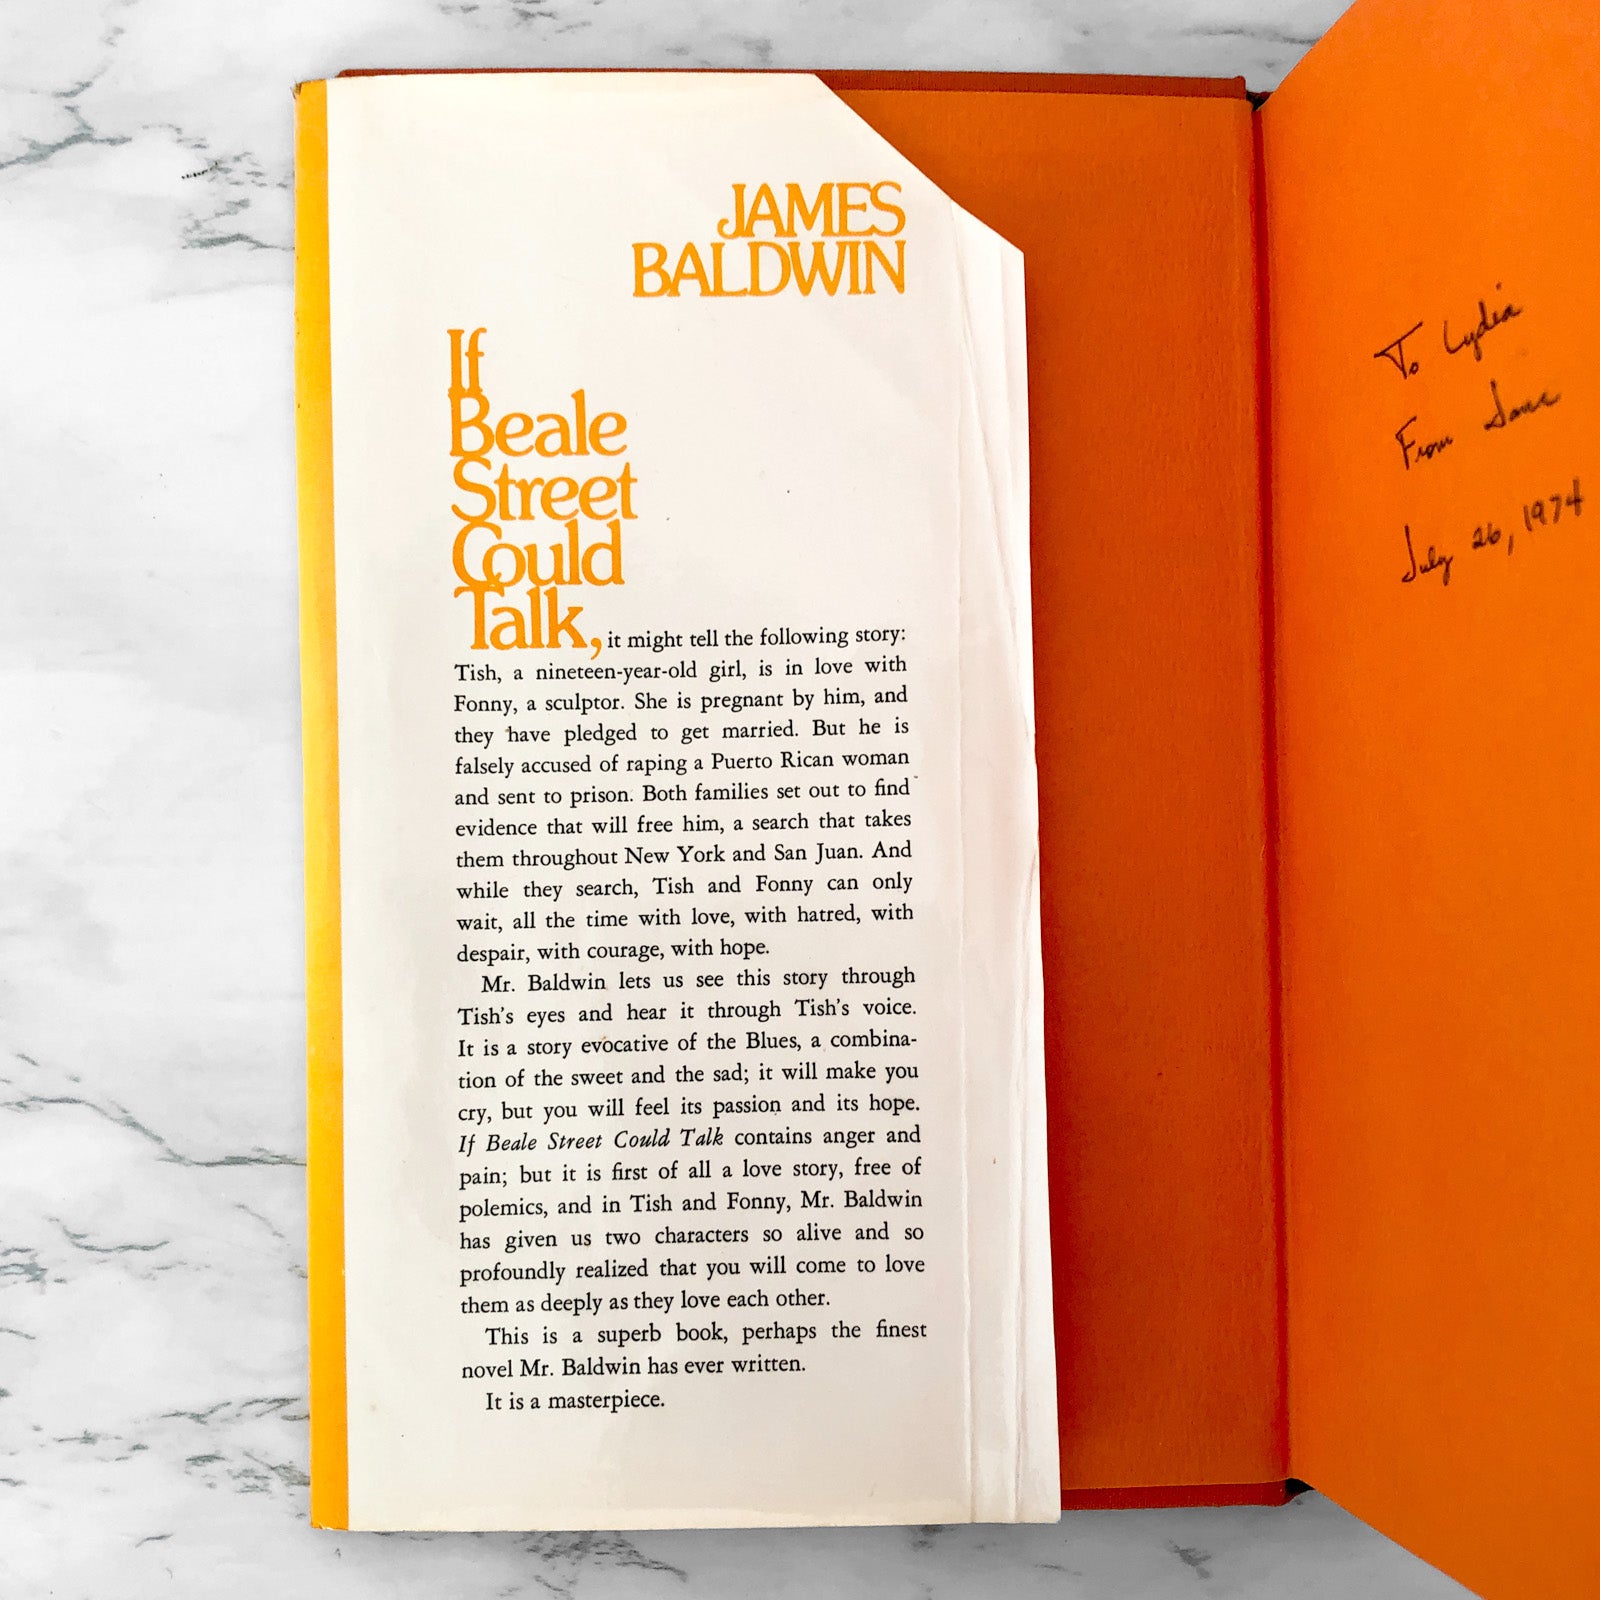 JAMES
BALDWIN
If
Beale
Street
Could
Talk, it might tell the following story:
Tish, a nineteen-year-old girl, is in love with
Fonny, a sculptor. She is pregnant by him, and
they have pledged to get married. But he is
falsely accused of raping a Puerto Rican woman
and sent to prison. Both families set out to find
evidence that will free him, a search that takes
them throughout New York and San Juan. And
while they search, Tish and Fonny can only
wait, all the time with love, with hatred, with
despair, with courage, with hope.
Mr. Baldwin lets us see this story through
Tish's eyes and hear it through Tish's voice.
It is a story evocative of the Blues, a combina-
tion of the sweet and the sad; it will make you
cry, but you will feel its passion and its hope.
If Beale Street Could Talk contains anger and
pain; but it is first of all a love story, free of
polemics, and in Tish and Fonny, Mr. Baldwin
has given us two characters so alive and so
profoundly realized that you will come to love
them as deeply as they love each other.
This is a superb book, perhaps the finest
novel Mr. Baldwin has ever written.
It is a masterpiece.
To Lydia
From
July 26, 1974